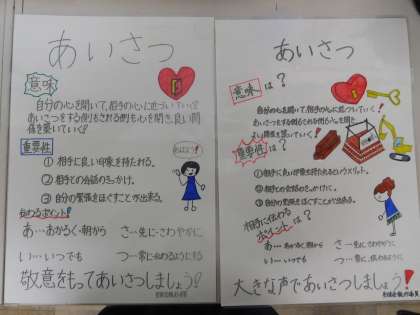 あいさつ
意味
自分の心を開いて、相手の心に近づいていく!
あいさつをする側もされる側も心を開き、良い関
係を築いていく!
重要性
おはよう!
① 相手に良い印象を持たれる。
② 相手との会話のきっかけ。
③ 自分の緊張をほぐすことが出来る。
伝わるポイント!
あ…あかるく・朝から さ…先に・さわやかに
い…いつでも つ…常に伝わるようにする
敬意をもってあいさつしましょう!
あいさつ
意味は?
自分の心を開いて、相手の心に近づいていく!
あいさつをする側もされる側も心を開き
良い関係を築いていく!
重要性は?
① 相手に良い印象を持たれるというメリット。
② 相手との会話のきっかけに。
③ 自分の緊張をほぐすことが出来る。
相手に伝わる
ポイントは?
あ…あかるく朝から さ…先にさわやかに
い…いつでも つ…常に伝わるように
大きな声であいさつしましょう!